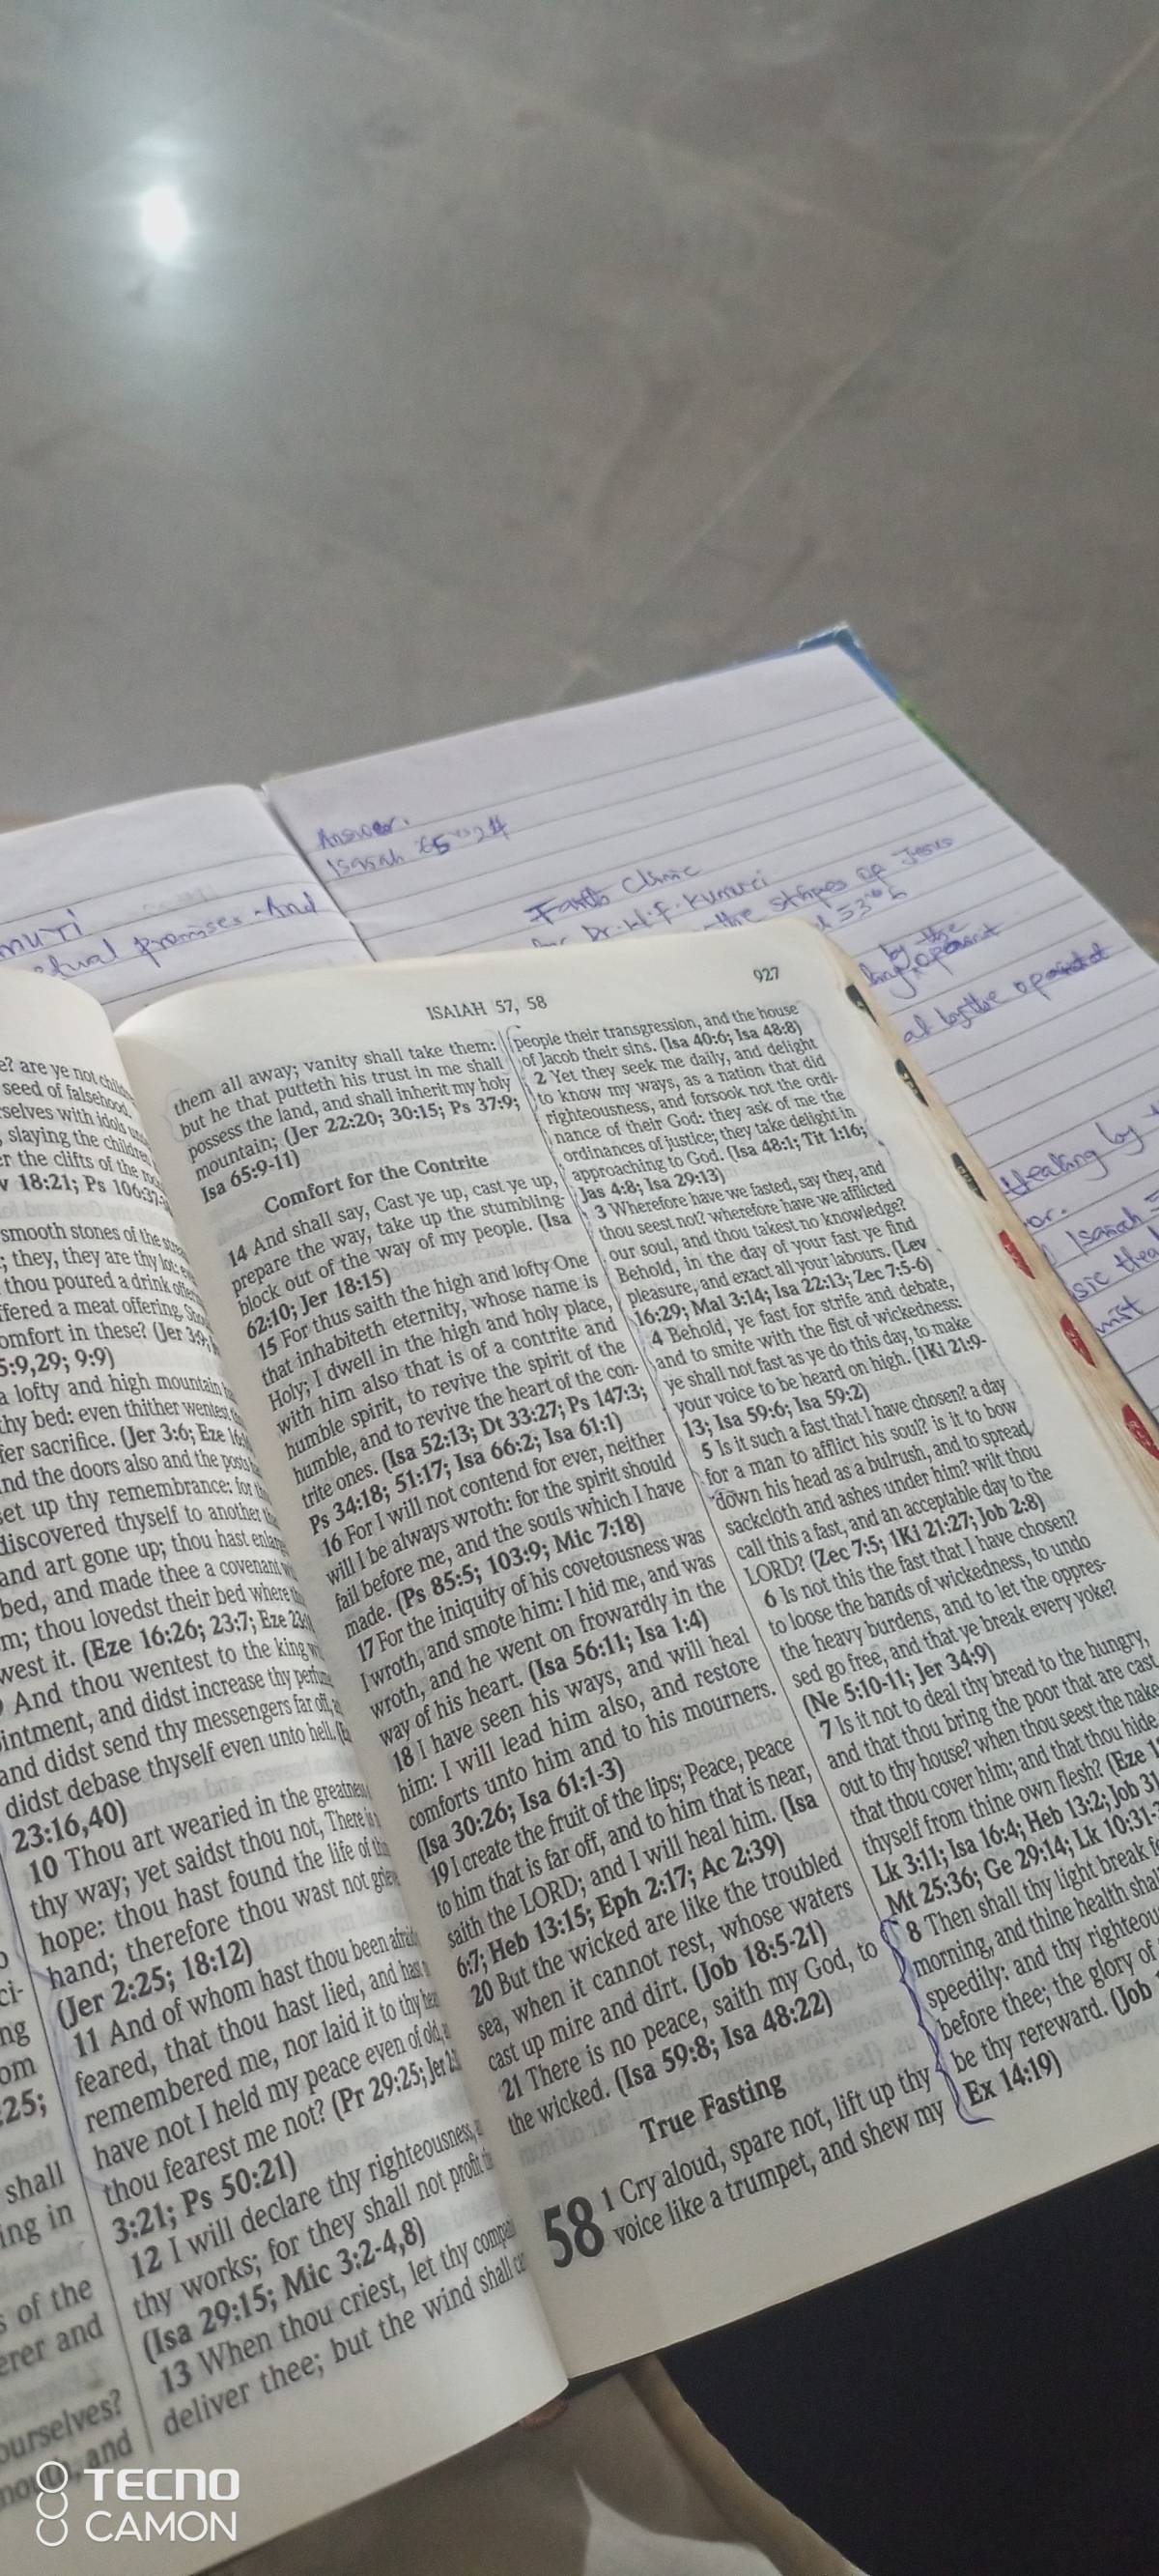 Answer.
Isaiah
Faith Clinic
Dr. W. F. Kumuyi
the stripes of Jesus
by the
Healing by
Isaiah
ISAIAH 57, 58
927
e? are ye not
seed of falsehood.
selves with idols
, slaying the children
er the clifts of the
18:21; Ps 106:37
smooth stones of the
; they, they are thy lot:
thou poured a drink
ffered a meat offering.
omfort in these? (Jer 3:9;
5:9,29; 9:9)
a lofty and high mountain
thy bed: even thither wentest
fer sacrifice. (Jer 3:6; Eze
nd the doors also and the posts
set up thy remembrance: for
discovered thyself to another
and art gone up; thou hast
bed, and made thee a covenant
m; thou lovedst their bed where
west it. (Eze 16:26; 23:7; Eze
And thou wentest to the king
intment, and didst increase thy
and didst send thy messengers far off,
didst debase thyself even unto hell.
23:16,40)
10 Thou art wearied in the greatness
thy way; yet saidst thou not, There is
hope: thou hast found the life of
hand; therefore thou wast not
(Jer 2:25; 18:12)
11 And of whom hast thou been afraid
feared, that thou hast lied, and hast
remembered me, nor laid it to thy
have not I held my peace even of old,
thou fearest me not? (Pr 29:25; Jer
3:21; Ps 50:21)
12 I will declare thy righteousness,
thy works; for they shall not profit
(Isa 29:15; Mic 3:2-4,8)
13 When thou criest, let thy
deliver thee; but the wind shall
ci-
ng
om
:25;
shall
ing in
s of the
erer and
ourselves?
and
them all away; vanity shall take them:
but he that putteth his trust in me shall
possess the land, and shall inherit my holy
mountain; (Jer 22:20; 30:15; Ps 37:9;
Isa 65:9-11)
Comfort for the Contrite
14 And shall say, Cast ye up, cast ye up,
prepare the way, take up the stumbling-
block out of the way of my people. (Isa
62:10; Jer 18:15)
15 For thus saith the high and lofty One
that inhabiteth eternity, whose name is
Holy; I dwell in the high and holy place,
with him also that is of a contrite and
humble spirit, to revive the spirit of the
humble, and to revive the heart of the con-
trite ones. (Isa 52:13; Dt 33:27; Ps 147:3;
Ps 34:18; 51:17; Isa 66:2; Isa 61:1)
16 For I will not contend for ever, neither
will I be always wroth: for the spirit should
fail before me, and the souls which I have
made. (Ps 85:5; 103:9; Mic 7:18)
17 For the iniquity of his covetousness was
I wroth, and smote him: I hid me, and was
wroth, and he went on frowardly in the
way of his heart. (Isa 56:11; Isa 1:4)
18 I have seen his ways, and will heal
him: I will lead him also, and restore
comforts unto him and to his mourners.
(Isa 30:26; Isa 61:1-3)
19 I create the fruit of the lips; Peace, peace
to him that is far off, and to him that is near,
saith the LORD; and I will heal him. (Isa
6:7; Heb 13:15; Eph 2:17; Ac 2:39)
20 But the wicked are like the troubled
sea, when it cannot rest, whose waters
cast up mire and dirt. (Job 18:5-21)
21 There is no peace, saith my God, to
the wicked. (Isa 59:8; Isa 48:22)
True Fasting
58 1 Cry aloud, spare not, lift up thy
voice like a trumpet, and shew my
people their transgression, and the house
of Jacob their sins. (Isa 40:6; Isa 48:8)
2 Yet they seek me daily, and delight
to know my ways, as a nation that did
righteousness, and forsook not the ordi-
nance of their God: they ask of me the
ordinances of justice; they take delight in
approaching to God. (Isa 48:1; Tit 1:16;
Jas 4:8; Isa 29:13)
3 Wherefore have we fasted, say they, and
thou seest not? wherefore have we afflicted
our soul, and thou takest no knowledge?
Behold, in the day of your fast ye find
pleasure, and exact all your labours. (Lev
16:29; Mal 3:14; Isa 22:13; Zec 7:5-6)
4 Behold, ye fast for strife and debate,
and to smite with the fist of wickedness:
ye shall not fast as ye do this day, to make
your voice to be heard on high. (1Ki 21:9-
13; Isa 59:6; Isa 59:2)
5 Is it such a fast that I have chosen? a day
for a man to afflict his soul? is it to bow
down his head as a bulrush, and to spread
sackcloth and ashes under him? wilt thou
call this a fast, and an acceptable day to the
LORD? (Zec 7:5; 1Ki 21:27; Job 2:8)
6 Is not this the fast that I have chosen?
to loose the bands of wickedness, to undo
the heavy burdens, and to let the oppres-
sed go free, and that ye break every yoke?
(Ne 5:10-11; Jer 34:9)
7 Is it not to deal thy bread to the hungry,
and that thou bring the poor that are cast
out to thy house? when thou seest the nake
that thou cover him; and that thou hide
thyself from thine own flesh? (Eze
Lk 3:11; Isa 16:4; Heb 13:2; Job 31
Mt 25:36; Ge 29:14; Lk 10:31-
8 Then shall thy light break
morning, and thine health shal
speedily: and thy righteou
before thee; the glory of
be thy rereward. (Job
Ex 14:19)
TECNO
CAMON